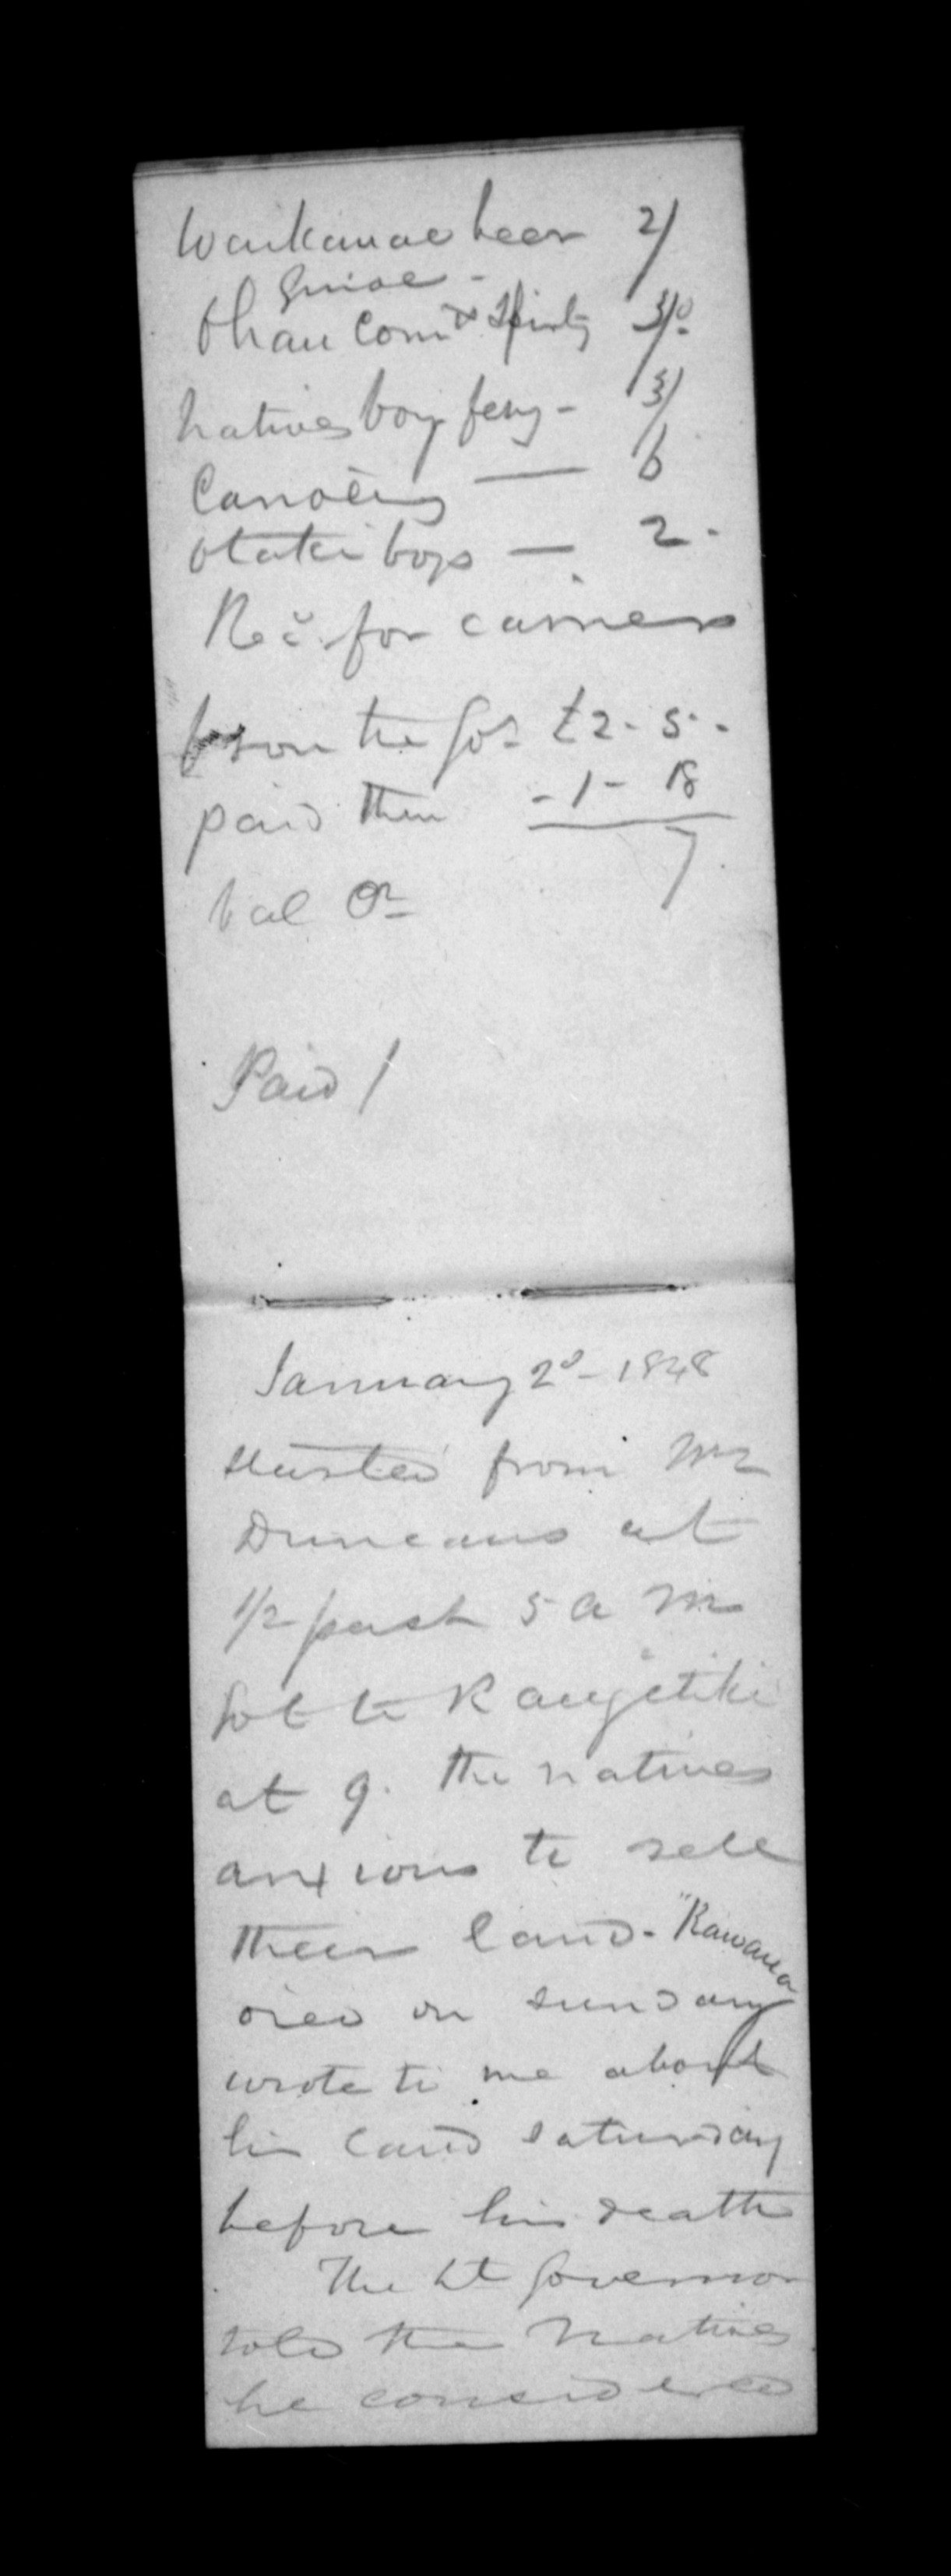 Waikanae beer 2/
Ohau Com
natives boy ferry - 3/
Canoeing — 6
Otaki boys — 2 -
Rec for carriers
from the Gov £2 - 5 -
paid them - 1 - 18
7
bal Or
Paid /
January 2d - 1848
Started from Mr
Duncans at
1/2 past 5 a m
Got to Rangitiki
at 9. The natives
anxious to sell
their land - "Rawana
died on sunday
wrote to me about
his land saturday
before his death
The Lt Governor
told the Natives
he considered